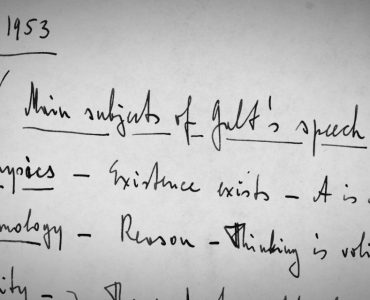 1953
Main subjects of Galt's speech
ysics – Existence exists – A is
mology – Reason – Thinking is voli
ity –